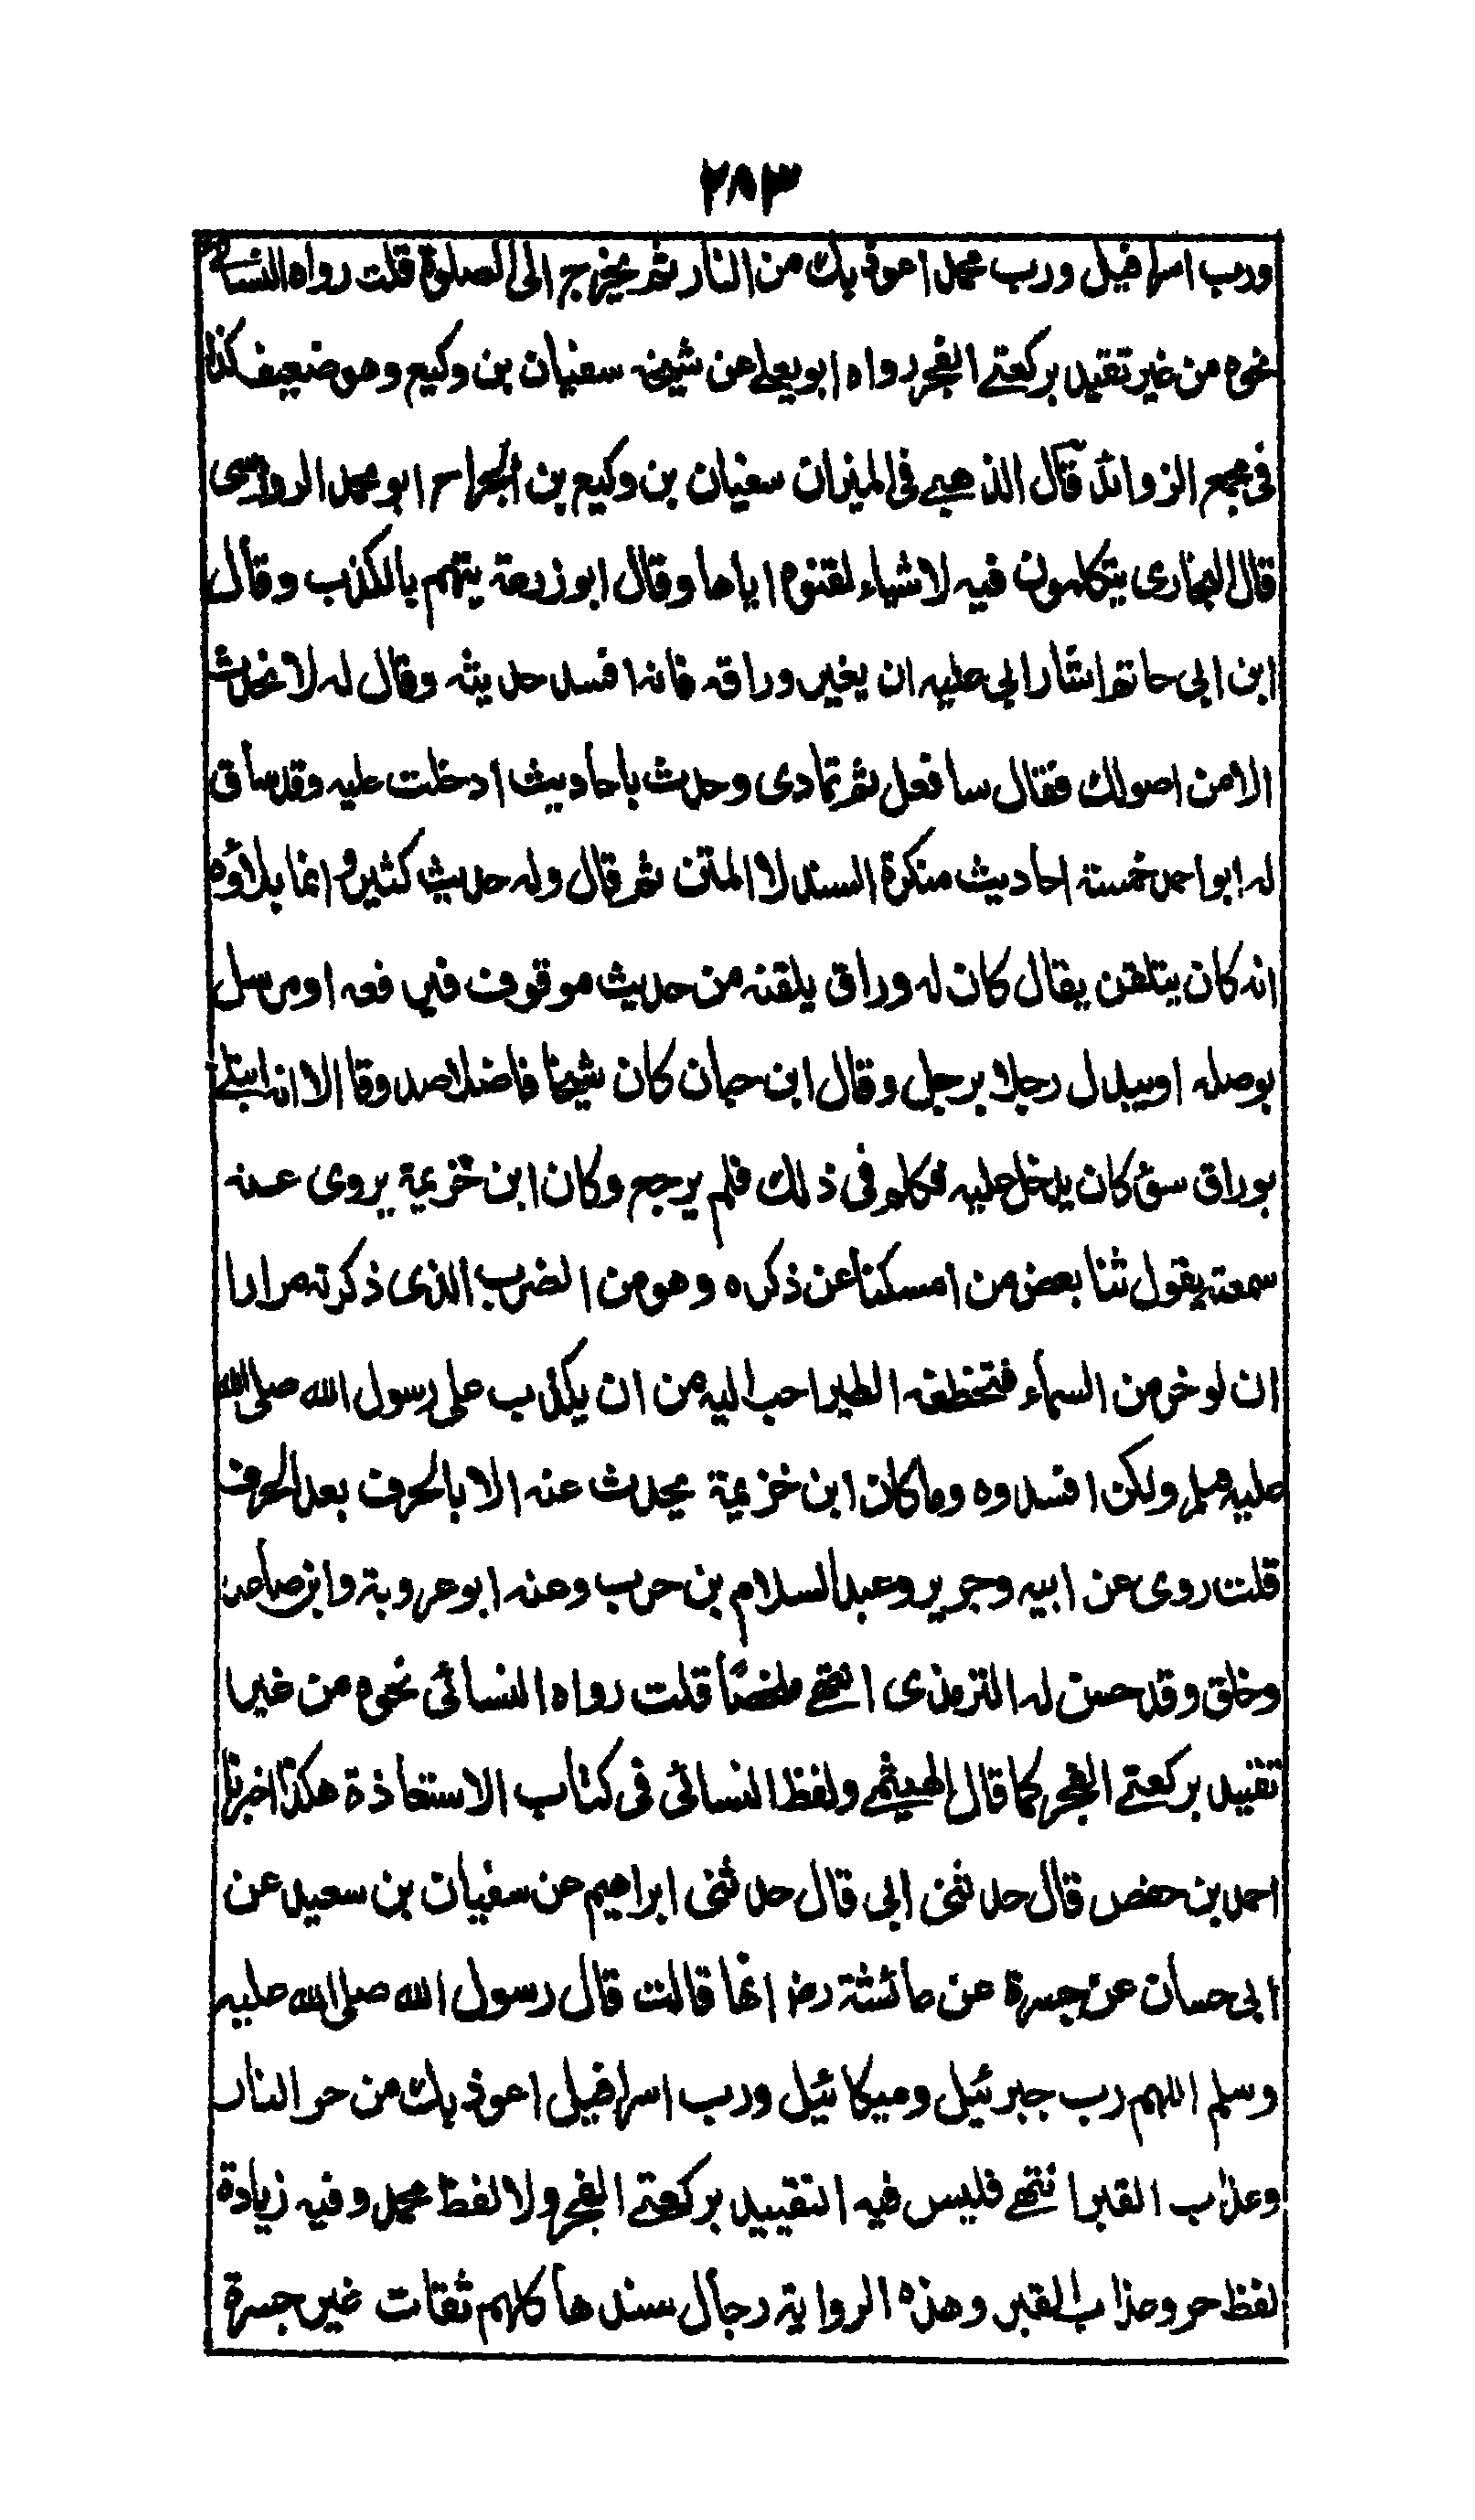 ٢٨٣
ورب اسرافيل ورب محمد اعوذ بك من النار ثم يخرج الى الصلوة قلت رواه النسائي
نحوه من غير تقييد بركعتے الفجر رواه ابو يعلے عن شيخه سفيان بن وكيع وهو ضعيف كذا
فى مجمع الزوائد قال الذهبے فى الميزان سفيان بن وكيع بن الجراح ابو محمد الرواسى
قال البخارى يتكلمون فيه لاشياء لقنوه اياها وقال ابو زرعة يتهم بالكذب وقال
ابن ابى حاتم اشار ابى عليه ان يغير وراقه فانه افسد حديثه وقال له لا تحدث
الا من اصولك فقال سافعل ثم تمادى وحدث باحاديث ادخلت عليه وقد ساق
له ابو احمد خمسة احاديث منكرة السند لا المتن ثم قال وله حديث كثير وانما بلاؤه
انه كان يتلقن يقال كان له وراق يلقنه من حديث موقوف فيرفعه او مرسل
يوصله او يبدل رجلا برجل وقال ابن حبان كان شيخا فاضلا صدوقا الا انه ابتلے
بوراق سوء كان يدخل عليه فكلم فى ذلك فلم يرجع وكان ابن خزيمة يروى عنه
سمعته يقول ثنا بعض من امسكنا عن ذكره وهو من الضرب الذى ذكرته مرارا
ان لو خر من السماء فتخطفه الطير احب اليه من ان يكذب على رسول الله صلى الله
عليه وسلم ولكن افسدوه وما كان ابن خزيمة يحدث عنه الا بالحرف بعد الحرف
قلت روى عن ابيه وجرير وعبد السلام بن حرب وعنه ابو عروبة وابن صاعد
وخلق وقد حسن له الترمذى انتهے ملخصًا قلت رواه النسائى نحوه من غير
تقييد بركعتے الفجر كما قال الهيثمے ولفظ النسائى فى كتاب الاستعاذة هكذا اخبرنا
احمد بن حفص قال حدثنى ابى قال حدثنى ابراهيم عن سفيان بن سعيد عن
ابى حسان عن جسرة عن عائشة رضـ انها قالت قال رسول الله صلى الله عليه
وسلم اللهم رب جبرئيل وميكائيل ورب اسرافيل اعوذ بك من حر النار
وعذاب القبر انتهے فليس فيه التقييد بركعتے الفجر ولا لفظ محمد وفيه زيادة
لفظ حر وعذاب القبر وهذه الرواية رجال سندها كلهم ثقات غير جسرة